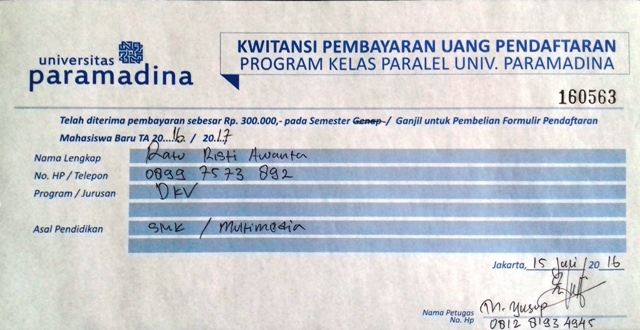 universitas
paramadina
KWITANSI PEMBAYARAN UANG PENDAFTARAN
PROGRAM KELAS PARALEL UNIV. PARAMADINA
160563
Telah diterima pembayaran sebesar Rp. 300.000,- pada Semester Genap / Ganjil untuk Pembelian Formulir Pendaftaran
Mahasiswa Baru TA 2016 / 2017
Nama Lengkap Ratu Risti Awanta
No. HP / Telepon 0899 7573 892
Program / Jurusan DKV
Asal Pendidikan SMK / Multimedia
Jakarta, 15 Juli / 2016
Nama Petugas M. Yusup
No. Hp 0812 8193 4945